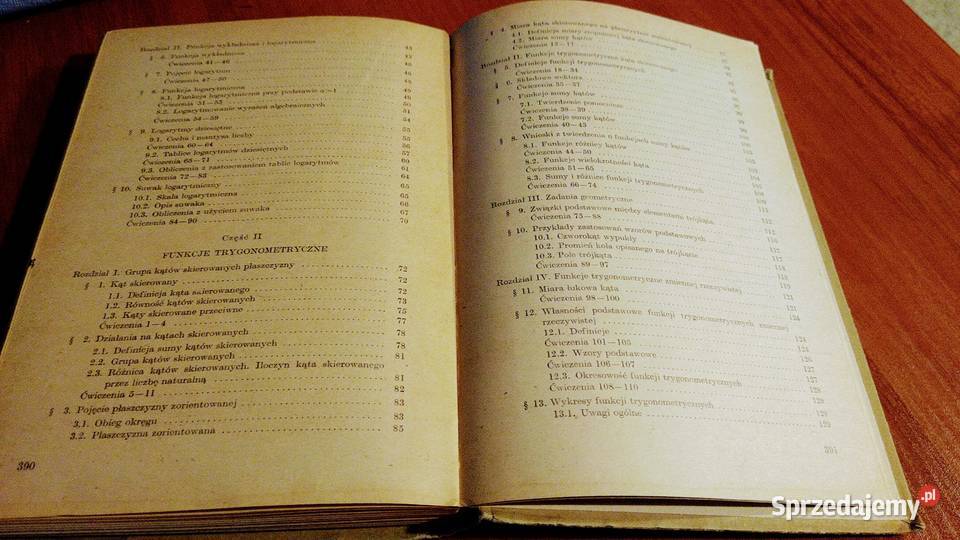 Rozdział II. Funkcja wykładnicza i logarytmiczna 43
§ 6. Funkcja wykładnicza
Ćwiczenia 41—46
§ 7. Pojęcie logarytmu
Ćwiczenia 47—50
§ 8. Funkcja logarytmiczna
8.1. Funkcja logarytmiczna przy podstawie a>1
Ćwiczenia 51—53
8.2. Logarytmowanie wyrażeń algebraicznych
Ćwiczenia 54—59 54
§ 9. Logarytmy dziesiętne 55
9.1. Cecha i mantysa liczby 55
Ćwiczenia 60—64 56
9.2. Tablice logarytmów dziesiętnych 57
Ćwiczenia 65—71 60
9.3. Obliczenia z zastosowaniem tablic logarytmów 61
Ćwiczenia 72—83 64
§ 10. Suwak logarytmiczny 65
10.1. Skala logarytmiczna 65
10.2. Opis suwaka 66
10.3. Obliczenia z użyciem suwaka 67
Ćwiczenia 84—90 70
Część II
FUNKCJE TRYGONOMETRYCZNE
Rozdział I. Grupa kątów skierowanych płaszczyzny 72
§ 1. Kąt skierowany 72
1.1. Definicja kąta skierowanego 72
1.2. Równość kątów skierowanych 73
1.3. Kąty skierowane przeciwne 75
Ćwiczenia 1—4 77
§ 2. Działania na kątach skierowanych 78
2.1. Definicja sumy kątów skierowanych 78
2.2. Grupa kątów skierowanych 81
2.3. Różnica kątów skierowanych. Iloczyn kąta skierowanego
przez liczbę naturalną 81
Ćwiczenia 5—11 82
§ 3. Pojęcie płaszczyzny zorientowanej 83
3.1. Obieg okręgu 83
3.2. Płaszczyzna zorientowana 85
390
§ 4. Miara kąta skierowanego na płaszczyźnie zorientowanej
4.1. Definicja miary stopniowej kąta skierowanego
4.2. Miara sumy kątów
Ćwiczenia 12—17
Rozdział II. Funkcje trygonometryczne kąta skierowanego
§ 5. Definicje funkcji trygonometrycznych
Ćwiczenia 18—34
§ 6. Składowe wektora
Ćwiczenia 35—37
§ 7. Funkcje sumy kątów
7.1. Twierdzenie pomocnicze
Ćwiczenia 38—39
7.2. Funkcje sumy kątów
Ćwiczenia 40—43
§ 8. Wnioski z twierdzenia o funkcjach sumy kątów
8.1. Funkcje różnicy kątów
Ćwiczenia 44—50
8.2. Funkcje wielokrotności kąta
Ćwiczenia 51—65
8.3. Sumy i różnice funkcji trygonometrycznych
Ćwiczenia 66—74
Rozdział III. Zadania geometryczne
§ 9. Związki podstawowe między elementami trójkąta
Ćwiczenia 75—88
§ 10. Przykłady zastosowań wzorów podstawowych
10.1. Czworokąt wypukły
10.2. Promień koła opisanego na trójkącie
10.3. Pole trójkąta
Ćwiczenia 89—97
Rozdział IV. Funkcje trygonometryczne zmiennej rzeczywistej
§ 11. Miara łukowa kąta
Ćwiczenia 98—100 121
§ 12. Własności podstawowe funkcji trygonometrycznych zmiennej
rzeczywistej 124
12.1. Definicje 124
Ćwiczenia 101—105 124
12.2. Wzory podstawowe 126
Ćwiczenia 106—107 127
12.3. Okresowość funkcji trygonometrycznych 127
Ćwiczenia 108—110 128
§ 13. Wykresy funkcji trygonometrycznych 129
13.1. Uwagi ogólne 129
391
Sprzedajemy.pl